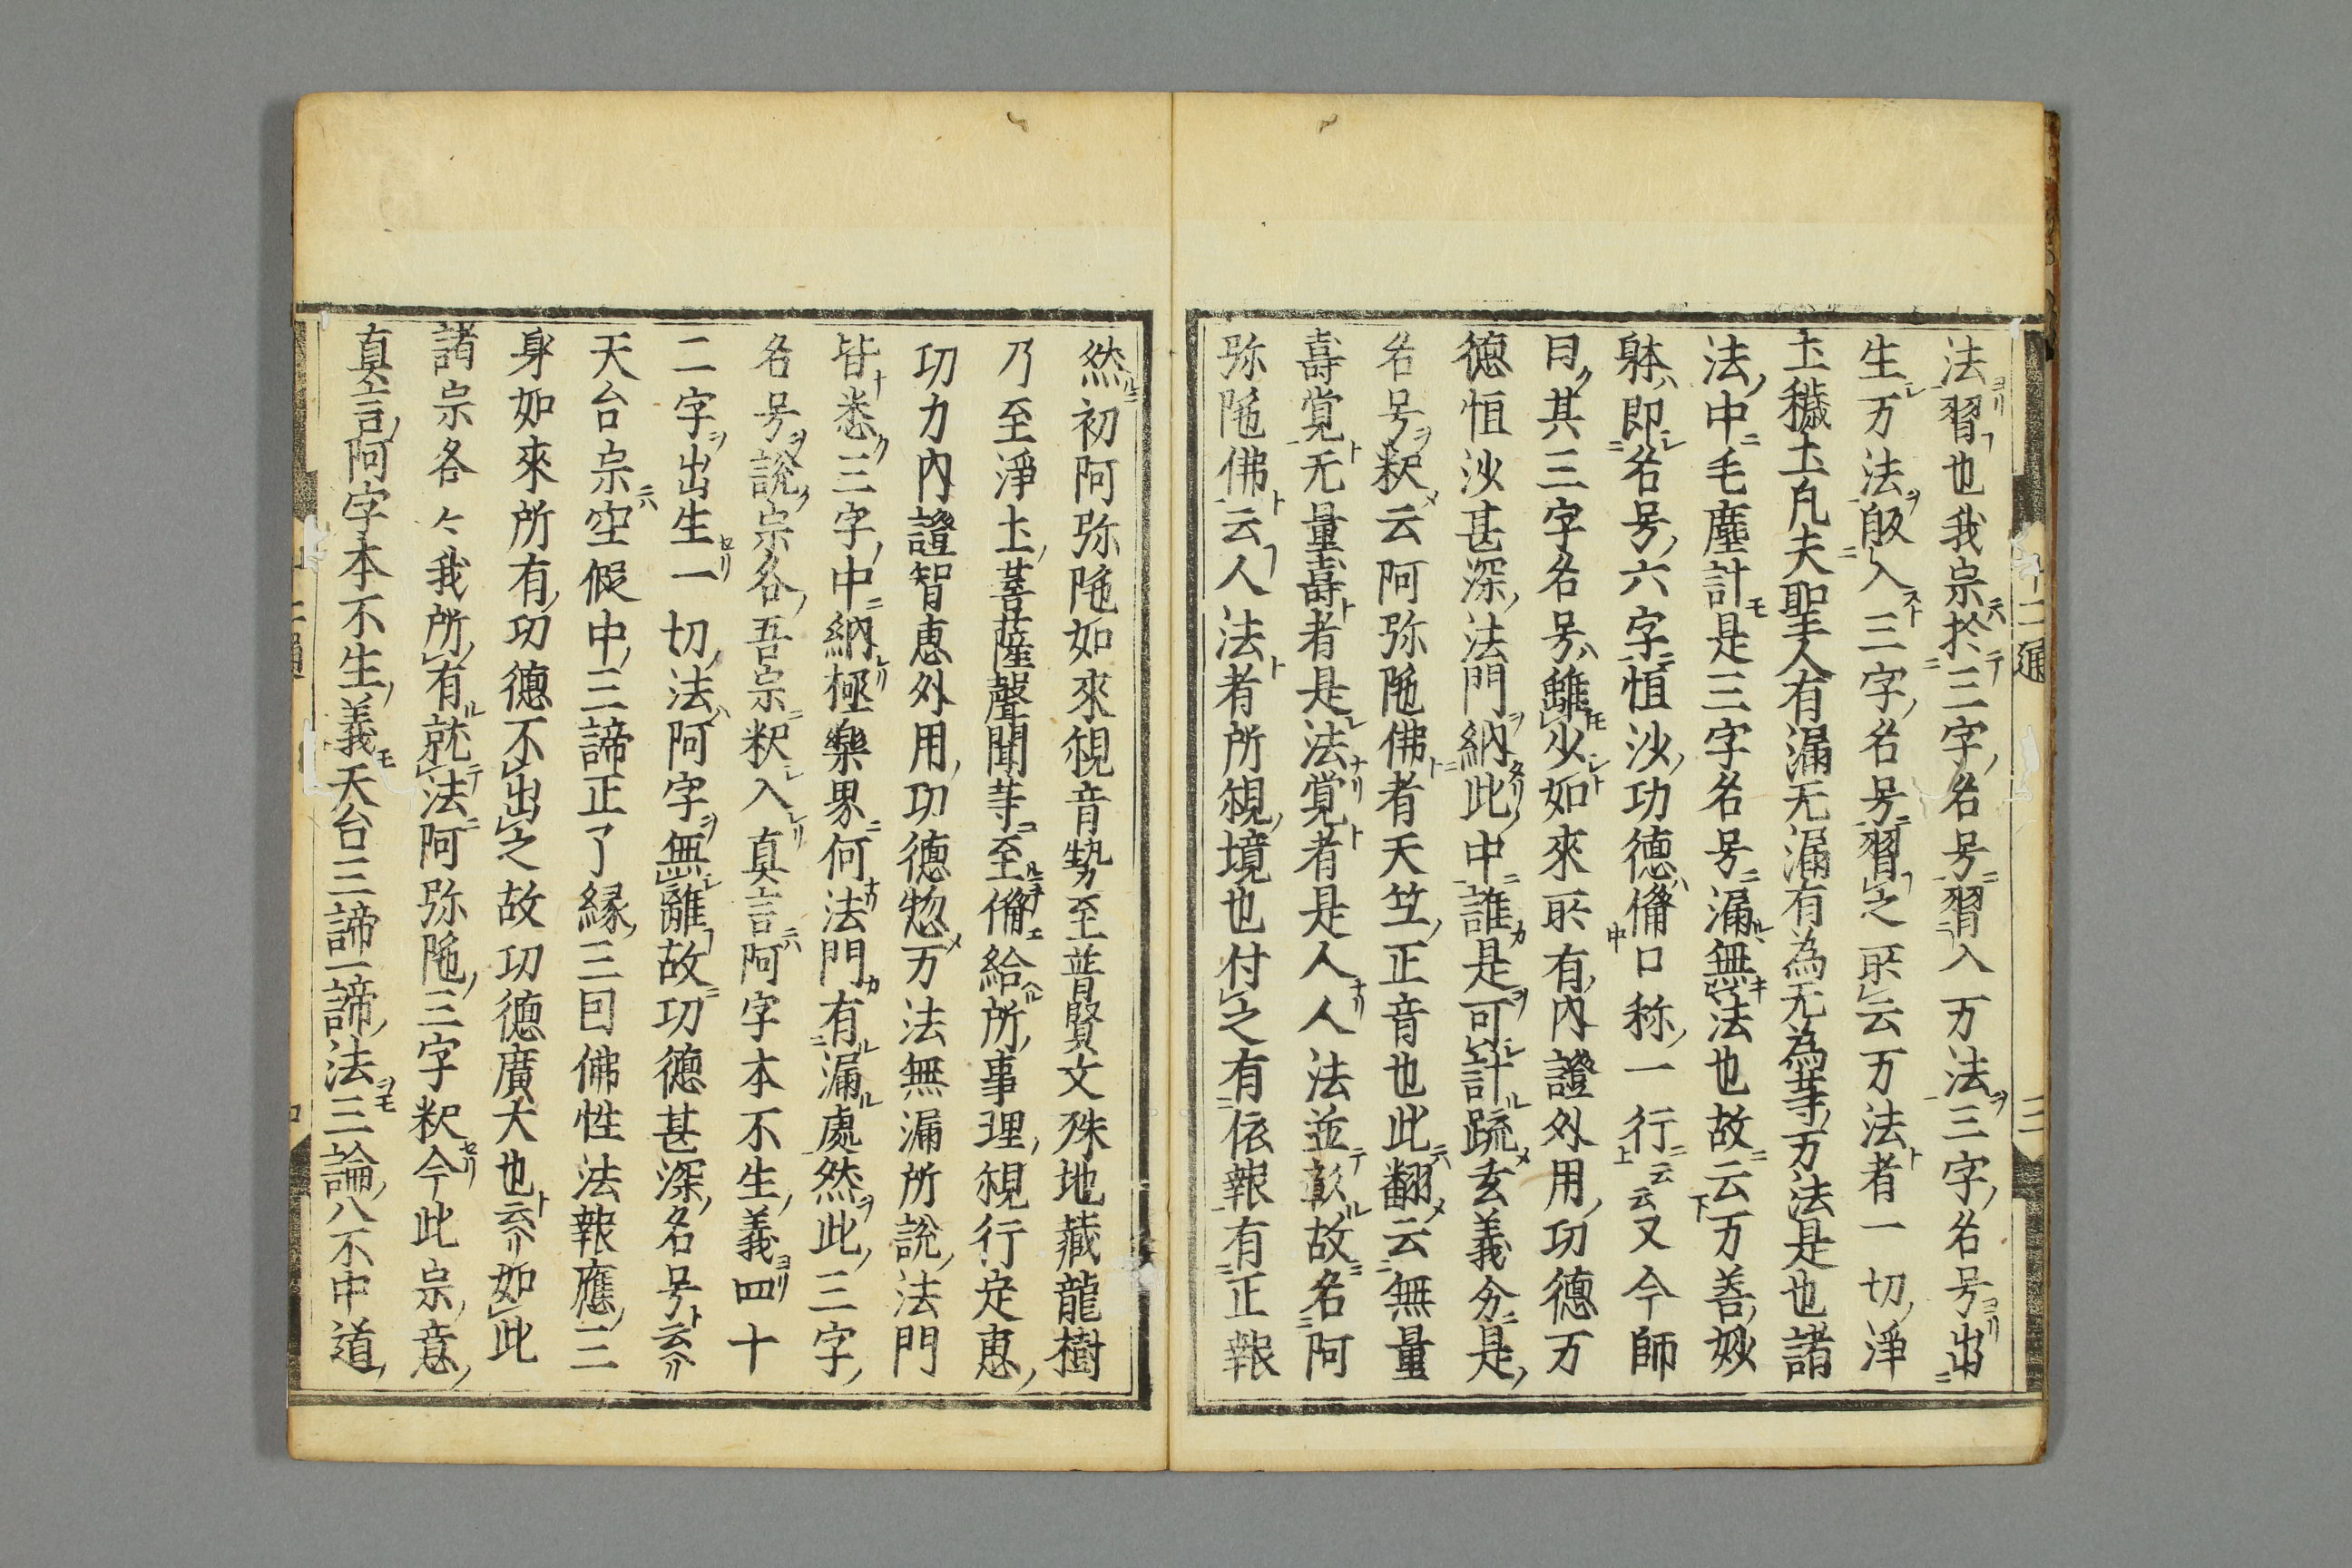 法習也我宗於三字名号習入万法三字名号出
生万法皈入三字名号習之所云万法者一切淨
土穢土凡夫聖人有漏无漏有為无為等万法是也諸
法中毛塵計是三字名号漏無法也故云万善妙
躰即名号六字恒沙功德備口称一行云云又今師
曰其三字名号雖少如來所有內證外用功德万
德恒沙甚深法門納此中誰是可計䟽玄義分是
名号釈云阿弥陁佛者天竺正音也此翻云無量
壽覚无量壽者是法覚者是人人法並彰故名阿
弥陁佛云人法者所観境也付之有依報有正報
十二通 三
然初阿弥陁如來観音勢至普賢文殊地蔵龍樹
乃至淨土菩薩聲聞等至備給所事理観行定恵
功力內證智恵外用功德惣万法無漏所說法門
皆悉三字中納極樂界何法門有漏處然此三字
名号說宗各吾宗釈入真言阿字本不生義四十
二字出生一切法阿字無離故功德甚深名号云云
天台宗空假中三諦正了縁三因佛性法報應三
身如來所有功德不出之故功德廣大也云云如此
諸宗各〻我所有就法阿弥陁三字釈今此宗意
真言阿字本不生義天台三諦一諦法三論八不中道